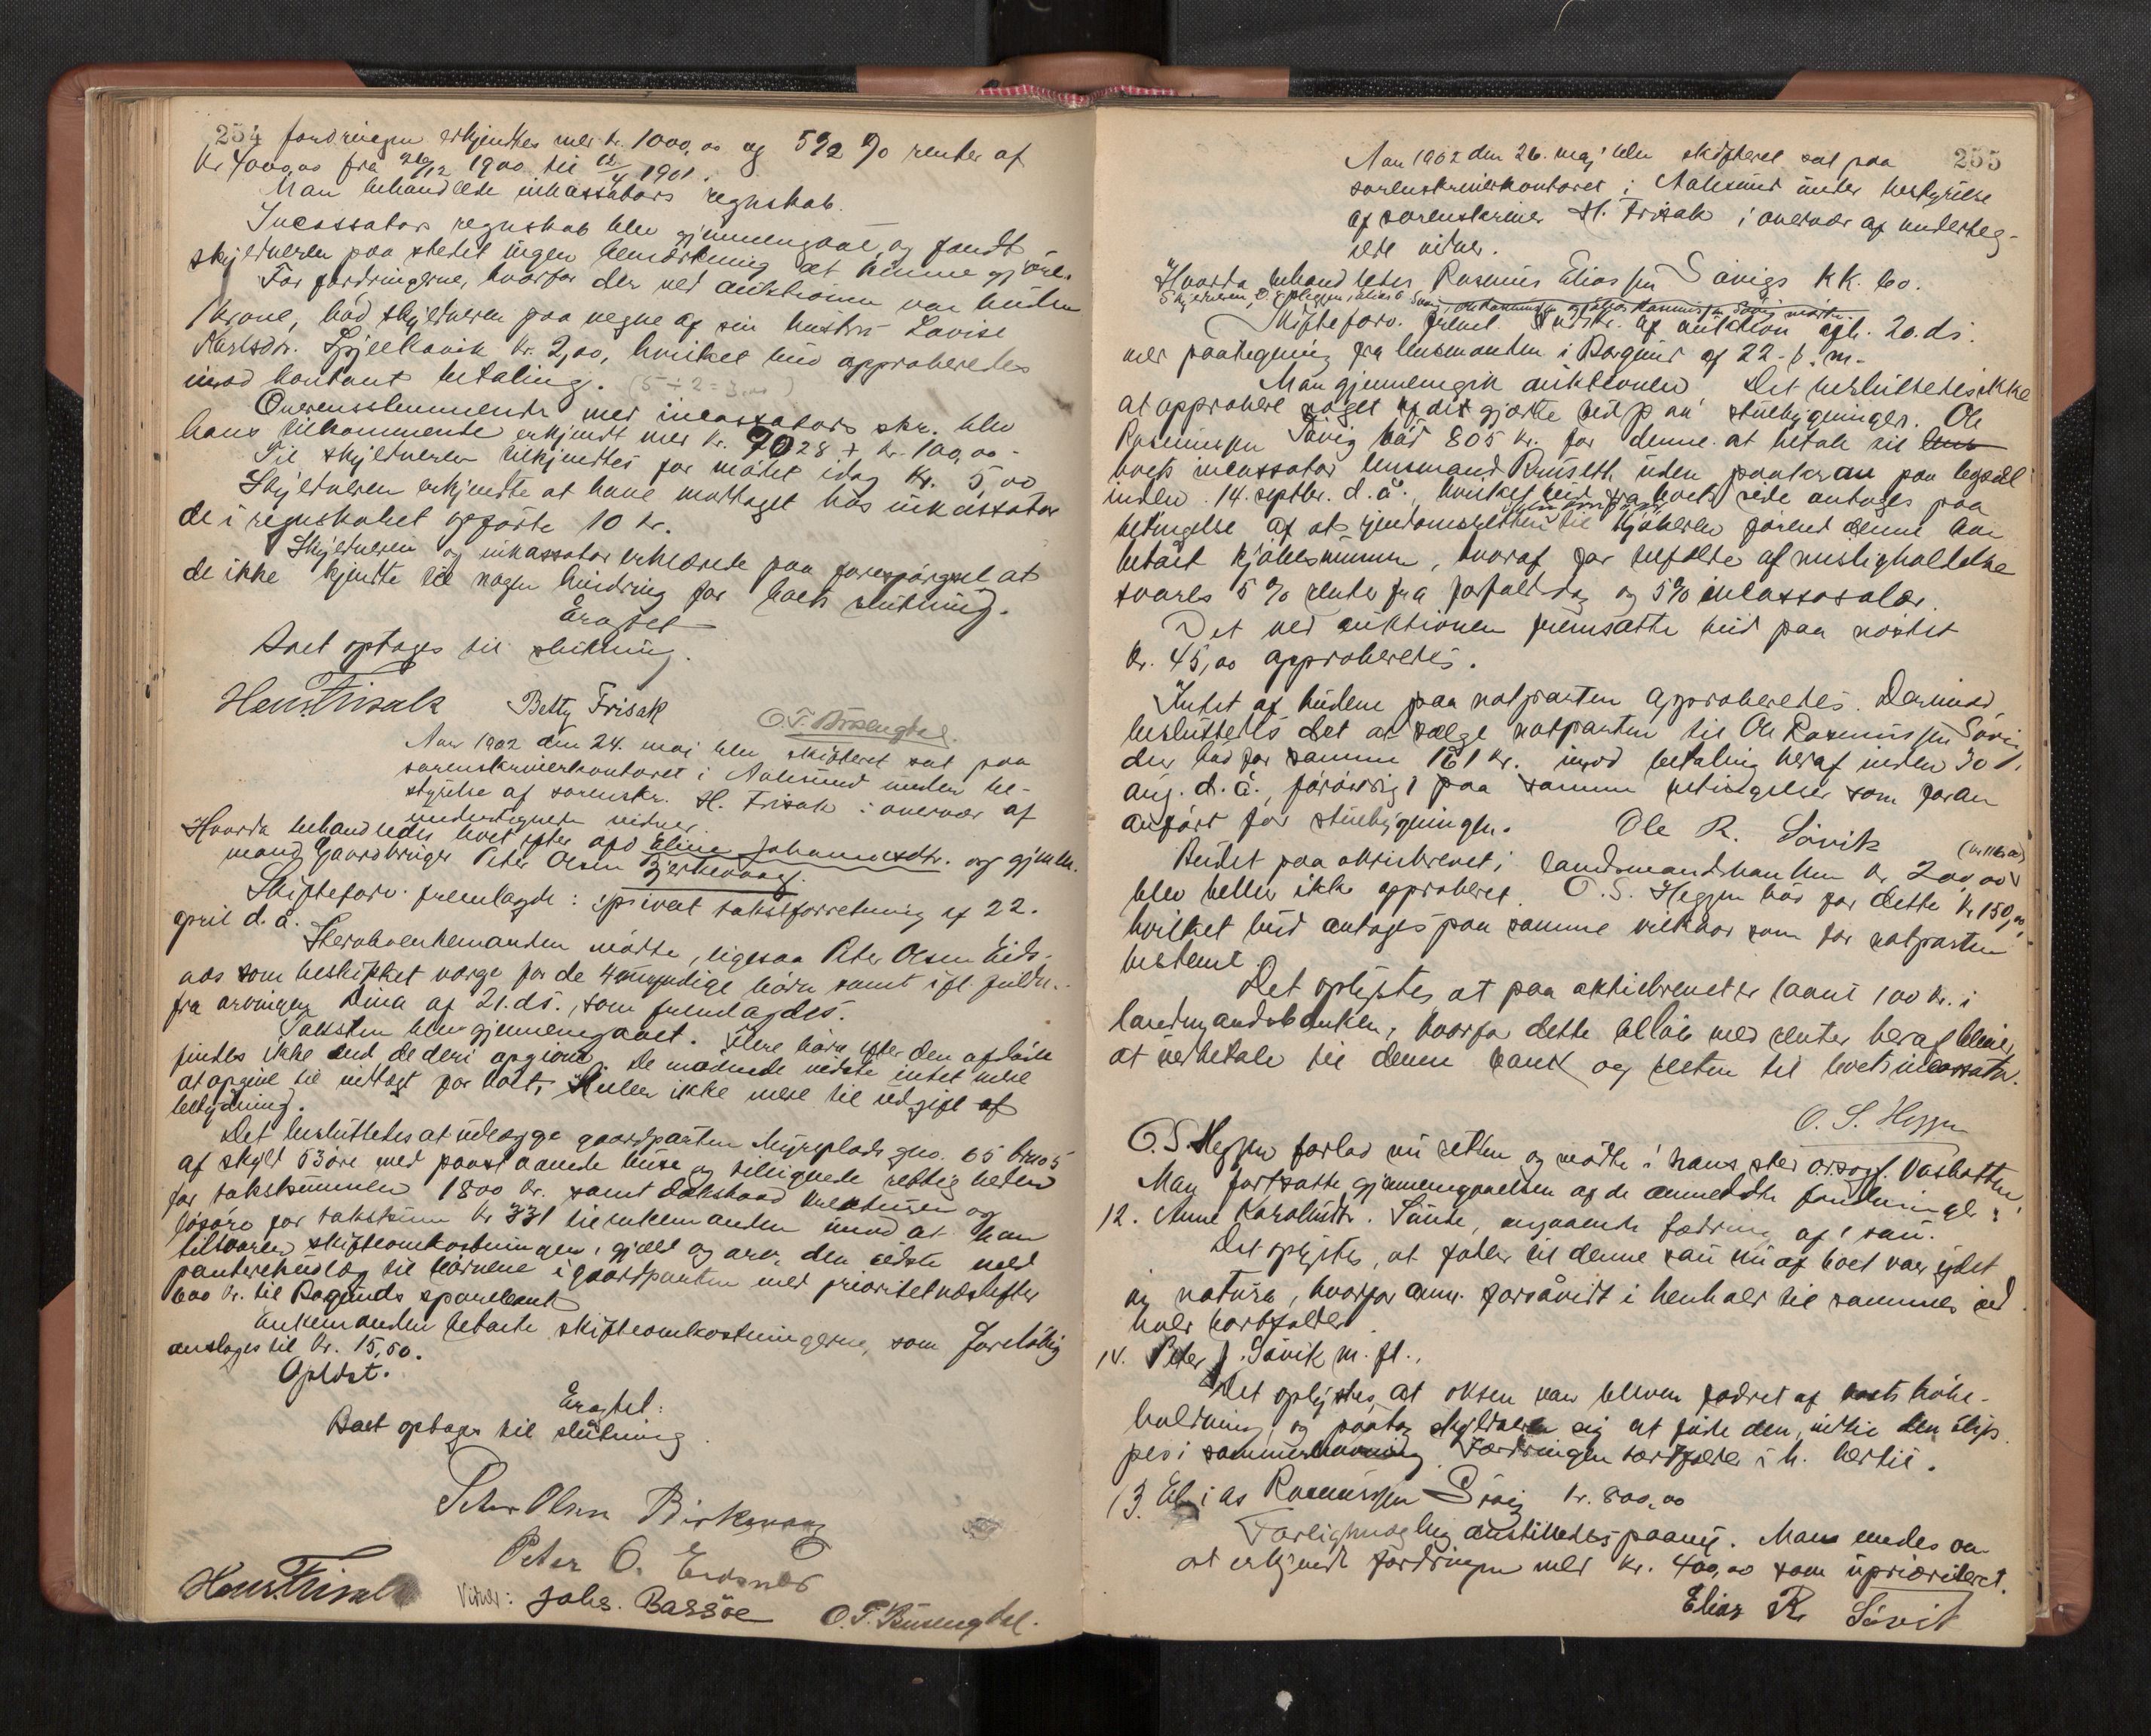 254 fordringen erkjendtes med kr. 1000,00 og 5 1/2 % renter af
kr 4000,00 fra 28/12 1900 til 12/4 1901.
Man behandlede inkassators regnskab.
Incassators regnskab blev gjennemgaaet, og fandt
skyldneren paa stedet ingen bemærkning at kunne gjøre.
For fordringerne, hvorfor der ved auktionen var buden
1 krone, bød skyldneren paa vegne af sin hustru Lovise
Karlsdtr. kr. 2,00, hvilket bud approberedes
imod kontant betaling. (5 + 2 = 3,00)
Overensstemmende med incassators skr. blev
hans tilkommende erkjendt med kr. 7028 + kr. 100,00.
Til skyldneren tilkjendtes for mødet idag kr. 5,00
Skyldneren erkjendte at have mottaget hos inkassator
de i regnskabet opførte 10 kr.
Skyldneren og inkassator erklærede paa forespørgsel at
de ikke kjendte til nogen hindring for boets slutning.
Eragtet
Boet optages til slutning.
Hans Frisak Betty Frisak O. T. Busengdal.
Aar 1902 den 24. maj blev skifteret sat paa
sorenskriverkontoret i Aalesund under be-
styrelse af sorenskr. H. Frisak i overvær af
undertegnede vidner.
Hvorda behandledes boet efter afd Eline Johannesdtr. og gjenlev.
mand gaardbruger Peter Olsen Bjerkevaag.
Skifteforv. fremlagde: privat takstforretning af 22.
april d. å.
Sterboenkemanden mødte, ligesaa Peter Olsen Eids-
nes som beskikket værge for de 4 umyndige børn samt ifl. fuldm.
fra arvingen Dina af 21. ds., som fremlagdes.
Taksten blev gjennemgaaet. Flere børn efter den afdøde
findes ikke end de deri opgivne. De mødende vidste intet mere
at opgive til indtægt for boet, heller ikke mere til udgift af
betydning.
Det besluttedes at udlægge gaardparten Myreplads gno. 65 brno 5
af skyld 53 øre med paastaaende huse og tilliggende rettigheder
for takstsummen 1800 kr. samt kreaturer og
løsøre for takstsum kr 331 til enkemanden imod at han
tilsvarer skifteomkostninger, gjæld og arv, den sidste med
panterhed til børnene i gaardparten med prioritet næstefter
600 kr. til Borgunds sparebank
Enkemanden betalte skifteomkostningerne, som foreløbig
anslages til kr. 15,50.
Oplæst.
Eragtet:
Boet optages til slutning.
Peter Olsen Birkevaag
Peter O. Eidsnes
Hans Frisak Vidner: Johs. Bassöe O. T. Busengdal.
255
Aar 1902 den 26. maj blev skifteret sat paa
sorenskriverkontoret i Aalesund under bestyrelse
af sorenskriver H. Frisak i overvær af underteg-
nede vidner.
Hvorda behandledes Rasmus Eliassen Søvigs KK. bo.
Skyldneren, O. S. Heggen, Elias
Skifteforv. freml. udskr. af auktion afh. 20. ds.
med paategning fra lensmanden i Borgund af 22- s. m.
Man gjennemgik auktionen. Det besluttedes ikke
at approbere noget af det gjorte bud paa stuebygningen. Ole
Rasmussen Søvig bød 805 kr. for denne at betale til
boets incassator lensmand uden pantekrav paa bygsel
inden 14. septbr. d. å., hvilket bud fra boets side antages paa
betingelse af at eiendomsretten til kjøberen førend denne har
betalt kjøbesummen, hvoraf for tilfælde af misligholdelse
svares 5 % renter fra forfaldsdag og 5% incassosalær.
Det ved auktionen fremsatte bud paa nøstet
kr. 45,00 approberedes.
Intet af budene paa notparten approberedes. Derimod
besluttedes det at sælge notparten til Ole Rasmussen Søvig
der bød for samme 161 kr. imod betaling heraf inden 30 1.
aug. d. å., forøvrigt paa samme betingelser som foran
anført for stuebygningen. Ole R. Sövik
Budet paa aktiebrevet i landmandsbanken kr 200,00
blev heller ikke approberet. O. S. Heggen bød for dette kr 150,00
hvilket bud antages paa samme vilkaar som for notparten
bestemt.
Det oplystes at paa aktiebrevet er laant 100 kr. i
landmandsbanken, hvorfor dette beløb med renter heraf bliver
at indbetale til denne bank og resten til boets incassator.
O. S. Heggen
O. S. Heggen forlod nu retten og mødte i hans sted o.r.sagf. Vasbotten.
Man fortsatte gjennemgaaelsen af de anmeldte fordringer:
12. Anne Karolusdtr. Sunde, angaaende fodring af 1 sau.
Det oplystes, at foder til denne sau nu af boet var ydet
in natura, hvorfor anm. forsaavidt i henhold til sammes ind
hold bortfalder.
14. Peter J. Sövik m. fl..
Det oplystes, at oksen var bleven fodret af boets høbe-
holdning, og paatog skyldneren sig at føde den, indtil den slip
pes i sommerhavning. Fordringen bortfalder i h. hertil.
13. Elias Rasmussen Søvig kr. 800,00
Forligsmægling anstilledes paany. Man enedes om
at erkjende fordringen med kr. 400,00 som uprioriteret.
Elias R. Sövik